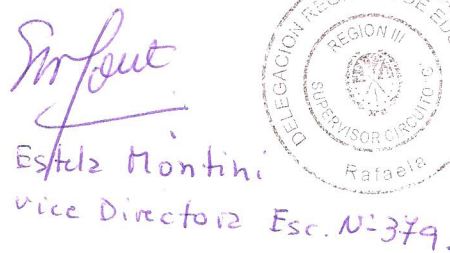 Estela Montini
Vice Directora Esc. N=379.
DELEGACION REG
DE EDU
REGION III
SUPERVISOR CIRCUITO C
Rafaela